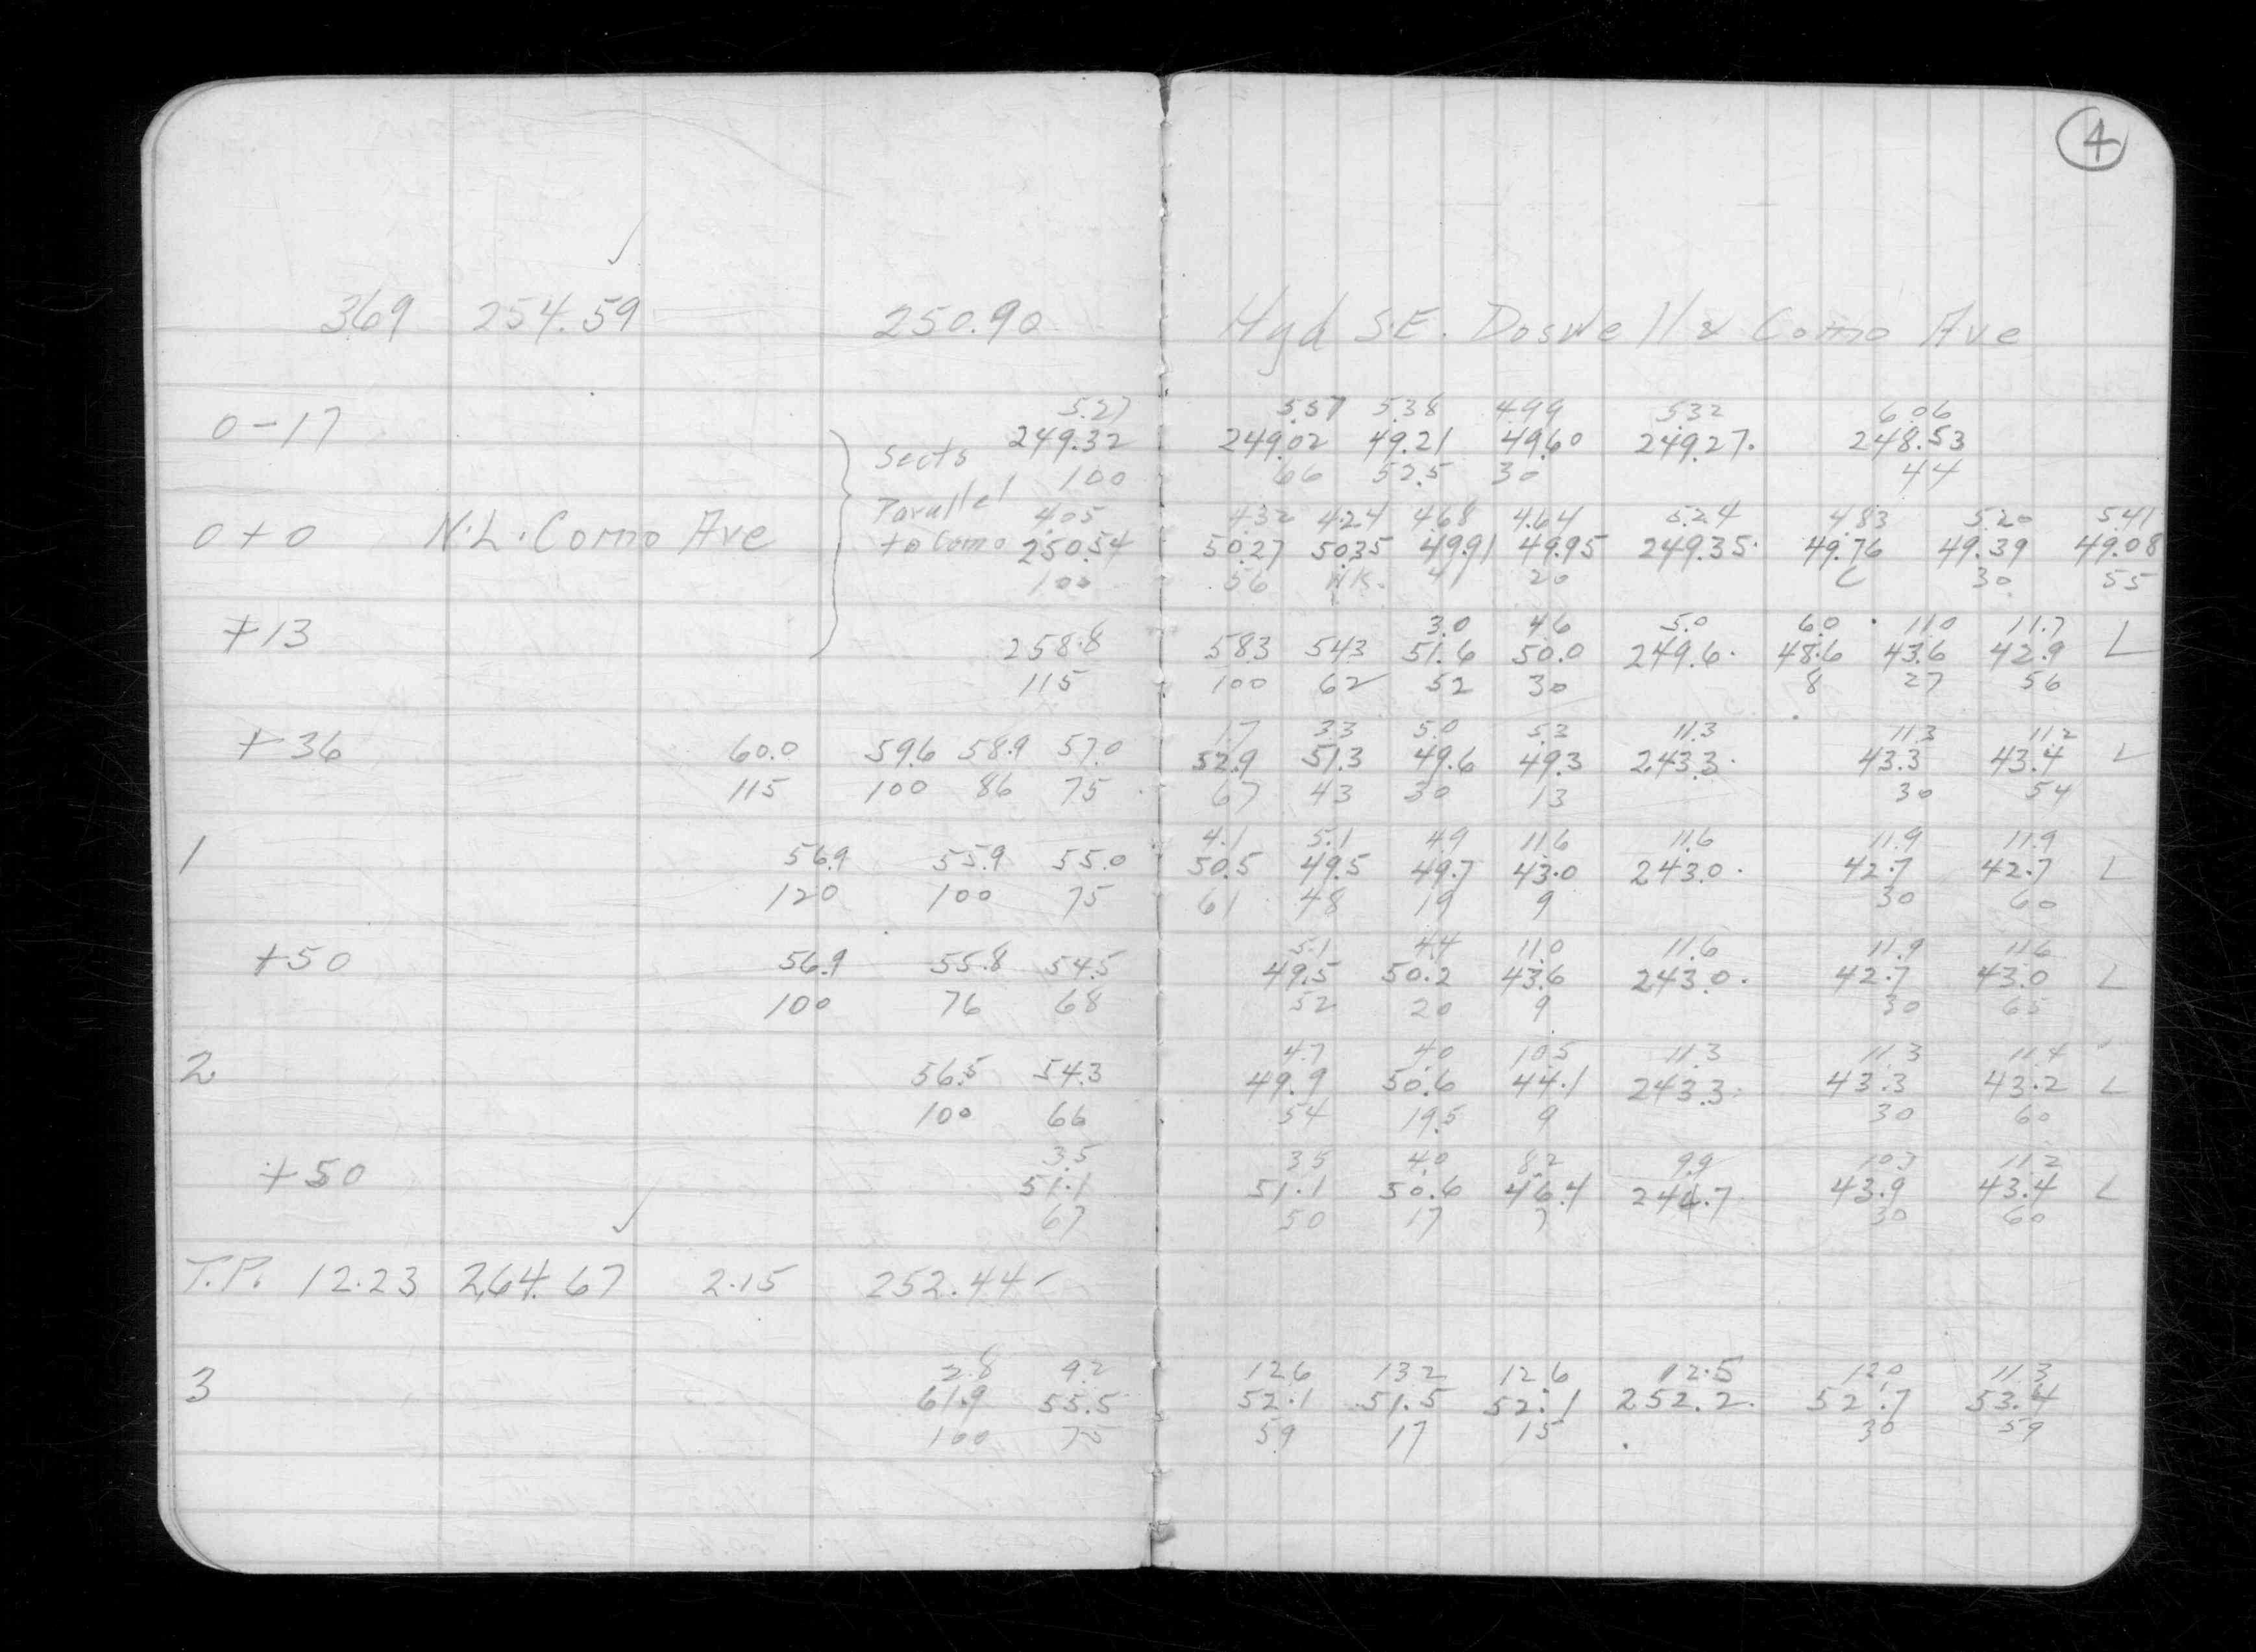 4
369 254.59 250.90 Hyd S.E. Doswell & Como Ave
5.27 5.57 5.38 4.99 5.32 6.06
0-17 249.32 249.02 49.21 49.60 249.27. 248.53
Sects 100 66 52.5 30 44
Parallel 4.05 4.32 4.24 4.68 4.64 5.24 4.83 5.20 5.41
0+0 N.L. Como Ave to Como 250.54 50.27 50.35 49.91 49.95 249.35. 49.76 49.39 49.08
100 56 41 20 C 30 55
3.0 4.6 5.0 6.0 11.0 11.7
+13 258.8 58.3 54.3 51.6 50.0 249.6. 48.6 43.6 42.9 L
115 100 62 52 30 8 27 56
1.7 3.3 5.0 5.3 11.3 11.3 11.2
+36 60.0 59.6 58.9 57.0 52.9 51.3 49.6 49.3 243.3. 43.3 43.4 L
115 100 86 75 67 43 30 13 30 54
4.1 5.1 4.9 11.6 11.6 11.9 11.9
1 56.9 55.9 55.0 50.5 49.5 49.7 43.0 243.0. 42.7 42.7 L
120 100 75 61 48 19 9 30 60
5.1 4.4 11.0 11.6 11.9 11.6
+50 56.9 55.8 54.5 49.5 50.2 43.6 243.0. 42.7 43.0 L
100 76 68 52 20 9 30 65
4.7 4.0 10.5 11.3 11.3 11.4
2 56.5 54.3 49.9 50.6 44.1 243.3. 43.3 43.2 L
100 66 54 19.5 9 30 60
3.5 3.5 4.0 8.2 9.9 10.7 11.2
+50 51.1 51.1 50.6 46.4 244.7 43.9 43.4 L
67 50 17 7 30 60
T.P. 12.23 264.67 2.15 252.44
2.8 9.2 12.6 13.2 12.6 12.5 12.0 11.3
3 61.9 55.5 52.1 51.5 52.1 252.2. 52.7 53.4
100 75 59 17 15 30 59